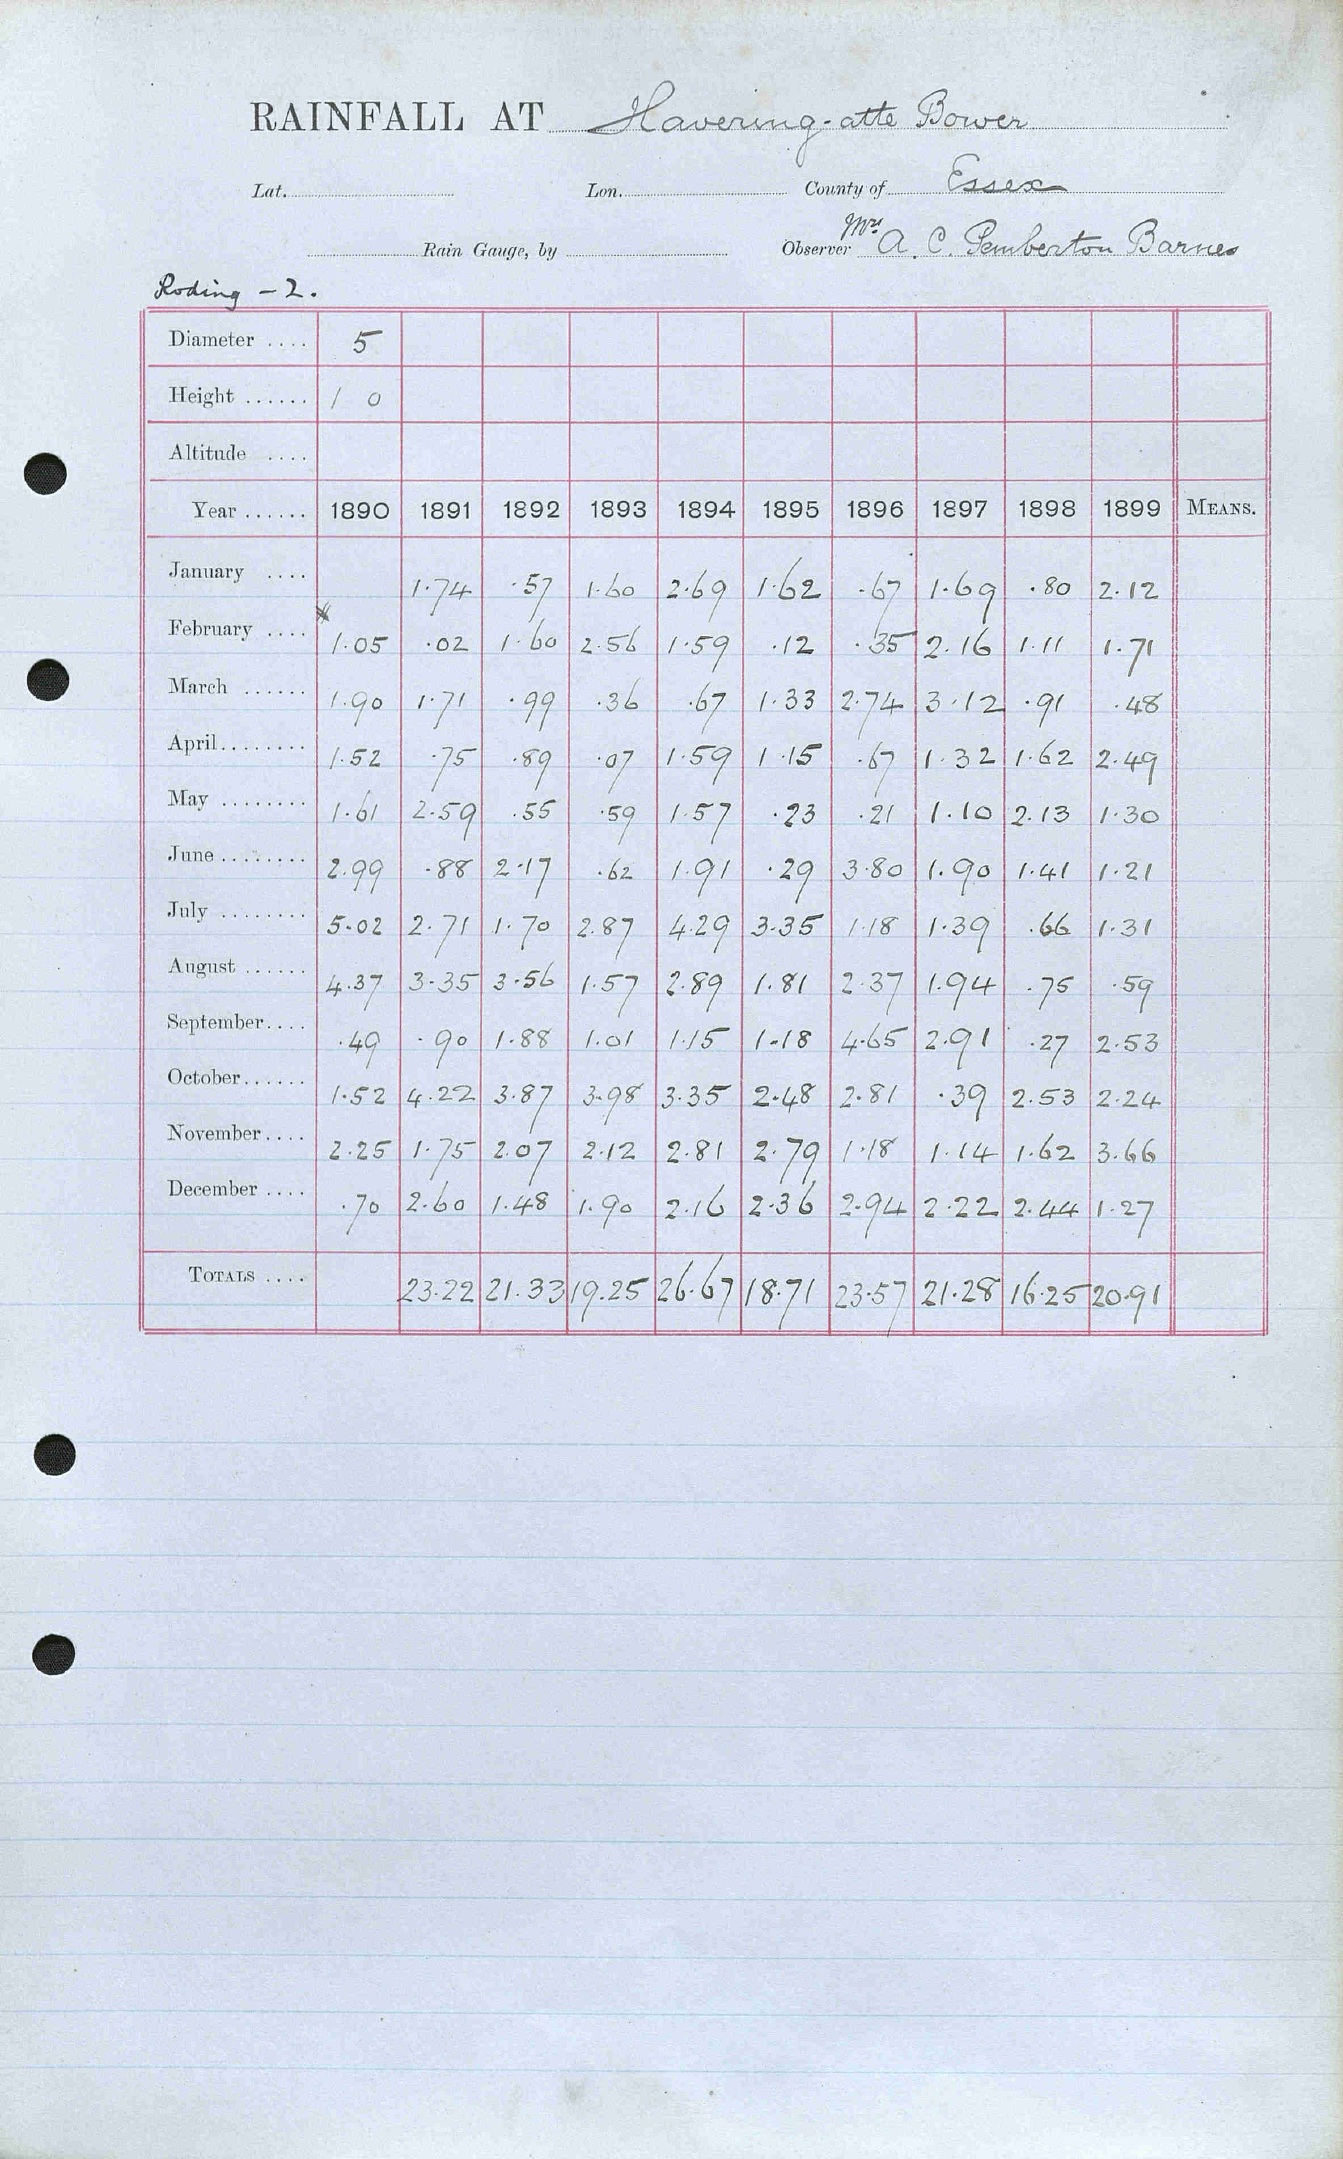 RAINFALL AT Havering-atte Bower
Lat. Lon. County of Essex
Rain Gauge, by Observer Mrs A. C. Pemberton Barnes
Roding - 2.
Diameter .... 5
Height ...... 1 0
Altitude ....
Year ...... 1890 1891 1892 1893 1894 1895 1896 1897 1898 1899 MEANS.
January .... 1.74 .57 1.60 2.69 1.62 .67 1.69 .80 2.12
February .... 1.05 .02 1.60 2.56 1.59 .12 .35 2.16 1.11 1.71
March ...... 1.90 1.71 .99 .36 .67 1.33 2.74 3.12 .91 .48
April........ 1.52 .75 .89 .07 1.59 1.15 .67 1.32 1.62 2.49
May ........ 1.61 2.59 .55 .59 1.57 .23 .21 1.10 2.13 1.30
June ........ 2.99 .88 2.17 .62 1.91 .29 3.80 1.90 1.41 1.21
July ........ 5.02 2.71 1.70 2.87 4.29 3.35 1.18 1.39 .66 1.31
August ...... 4.37 3.35 3.56 1.57 2.89 1.81 2.37 1.94 .75 .59
September.... .49 .90 1.88 1.01 1.15 1.18 4.65 2.91 .27 2.53
October...... 1.52 4.22 3.87 3.98 3.35 2.48 2.81 .39 2.53 2.24
November.... 2.25 1.75 2.07 2.12 2.81 2.79 1.18 1.14 1.62 3.66
December .... .70 2.60 1.48 1.90 2.16 2.36 2.94 2.22 2.44 1.27
TOTALS .... 23.22 21.33 19.25 26.67 18.71 23.57 21.28 16.25 20.91